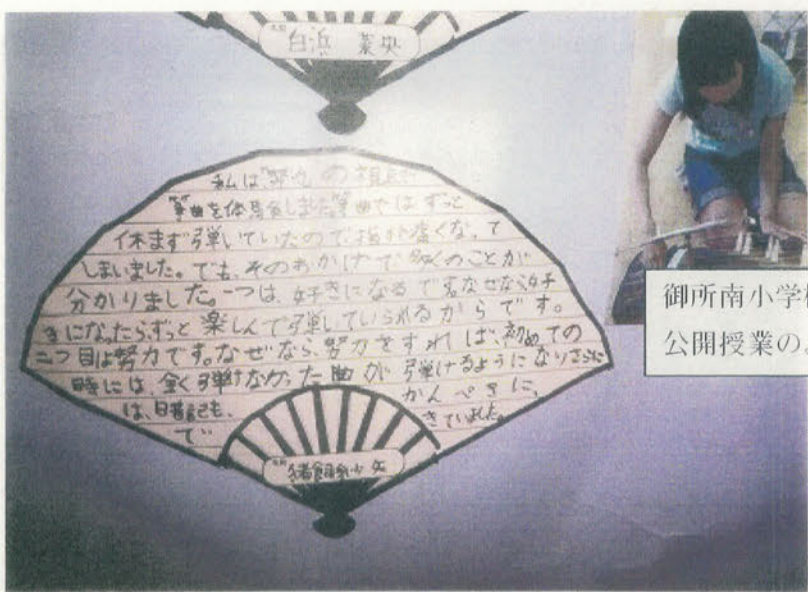 名前 白浜 菜央
私は
箏曲を体験しました。箏曲ではずっと
休まず弾いていたので、指が痛くなって
しまいました。でも、そのおかげで多くのことが
分かりました。一つは、好きになるです。なぜなら好
きになったら、ずっと楽しんで弾いていられるからです。
二つ目は努力です。なぜなら、努力をすれば、初めての
時には、全く弾けなかった曲が弾けるようになりさらに
は、暗記も、かんぺきに、
できていました。
名前
御所南小学校
公開授業の